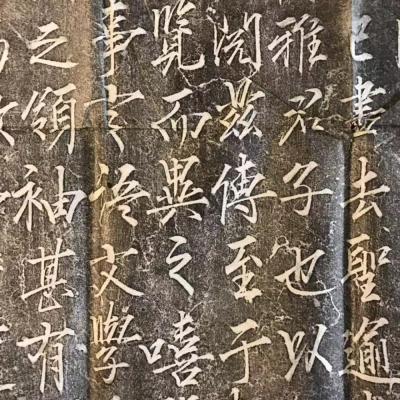 已盡去聖逾
雅君子也以
閱茲傳至于
覽而異之嘻
事言語文學
之領袖甚有